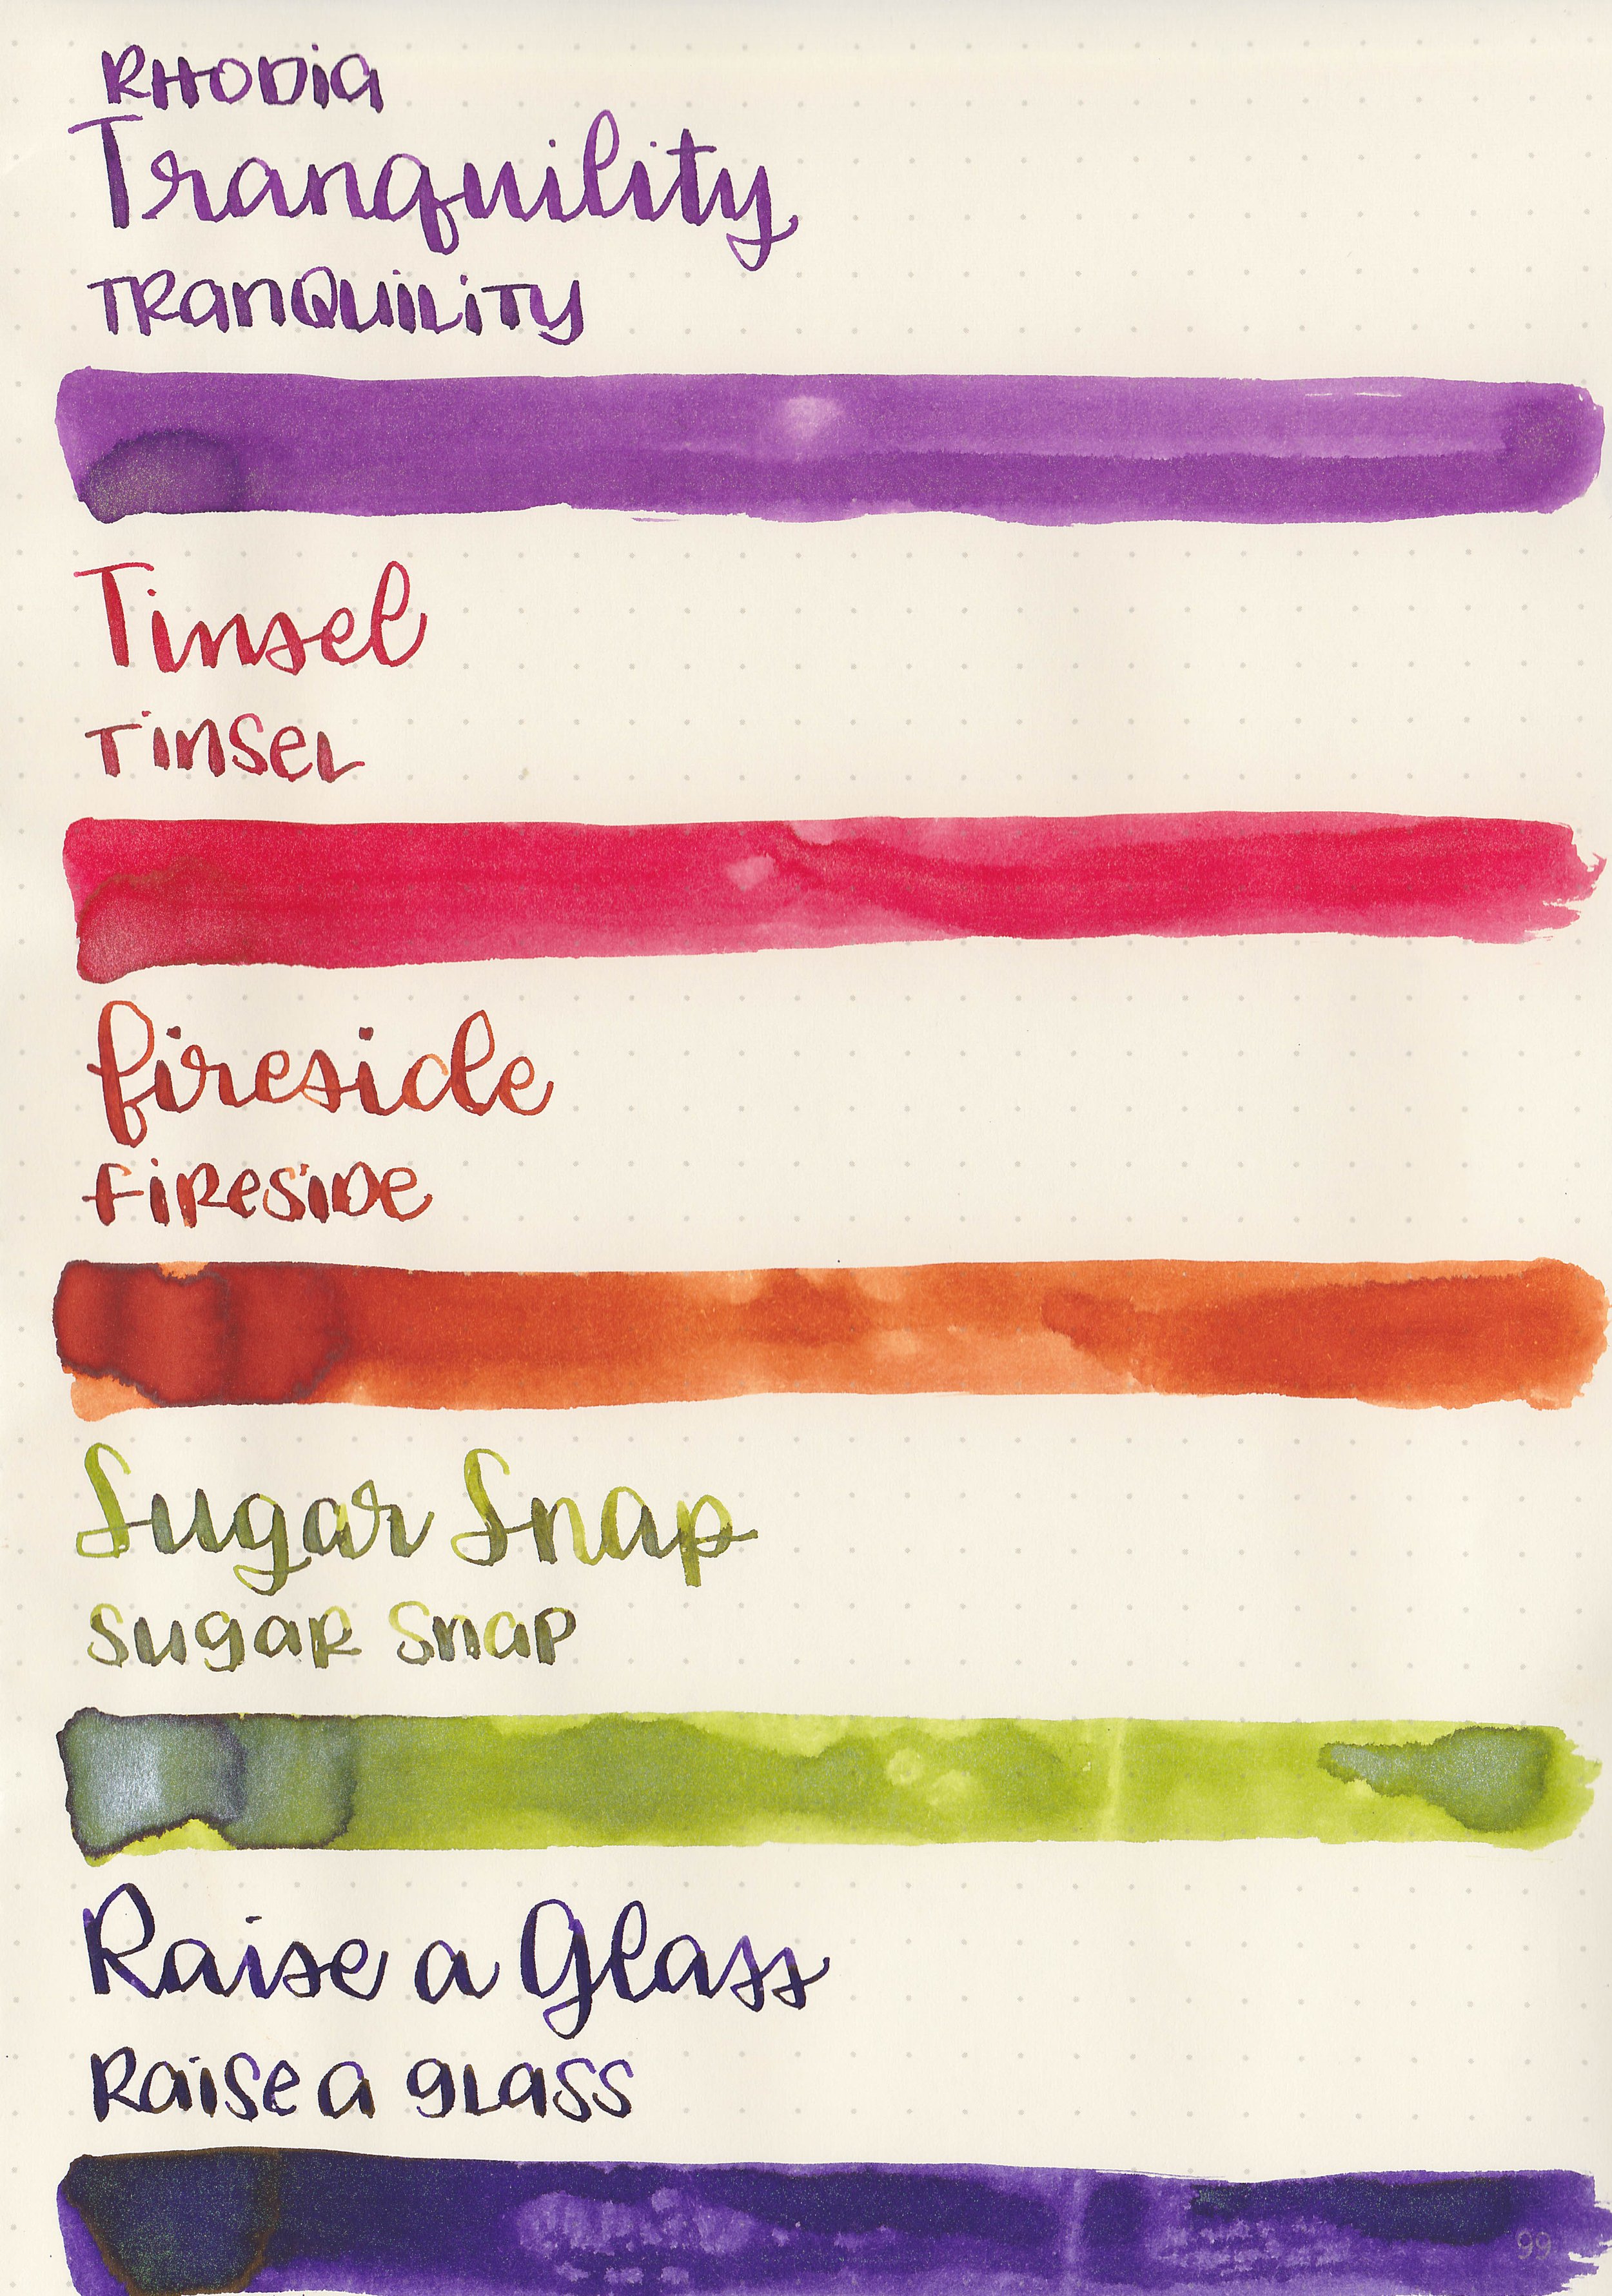 RHODIA
Tranquility
TRANQUILITY
Tinsel
TINSEL
fireside
FIRESIDE
Sugar Snap
SUGAR SNAP
Raise a Glass
RAISE A GLASS
99